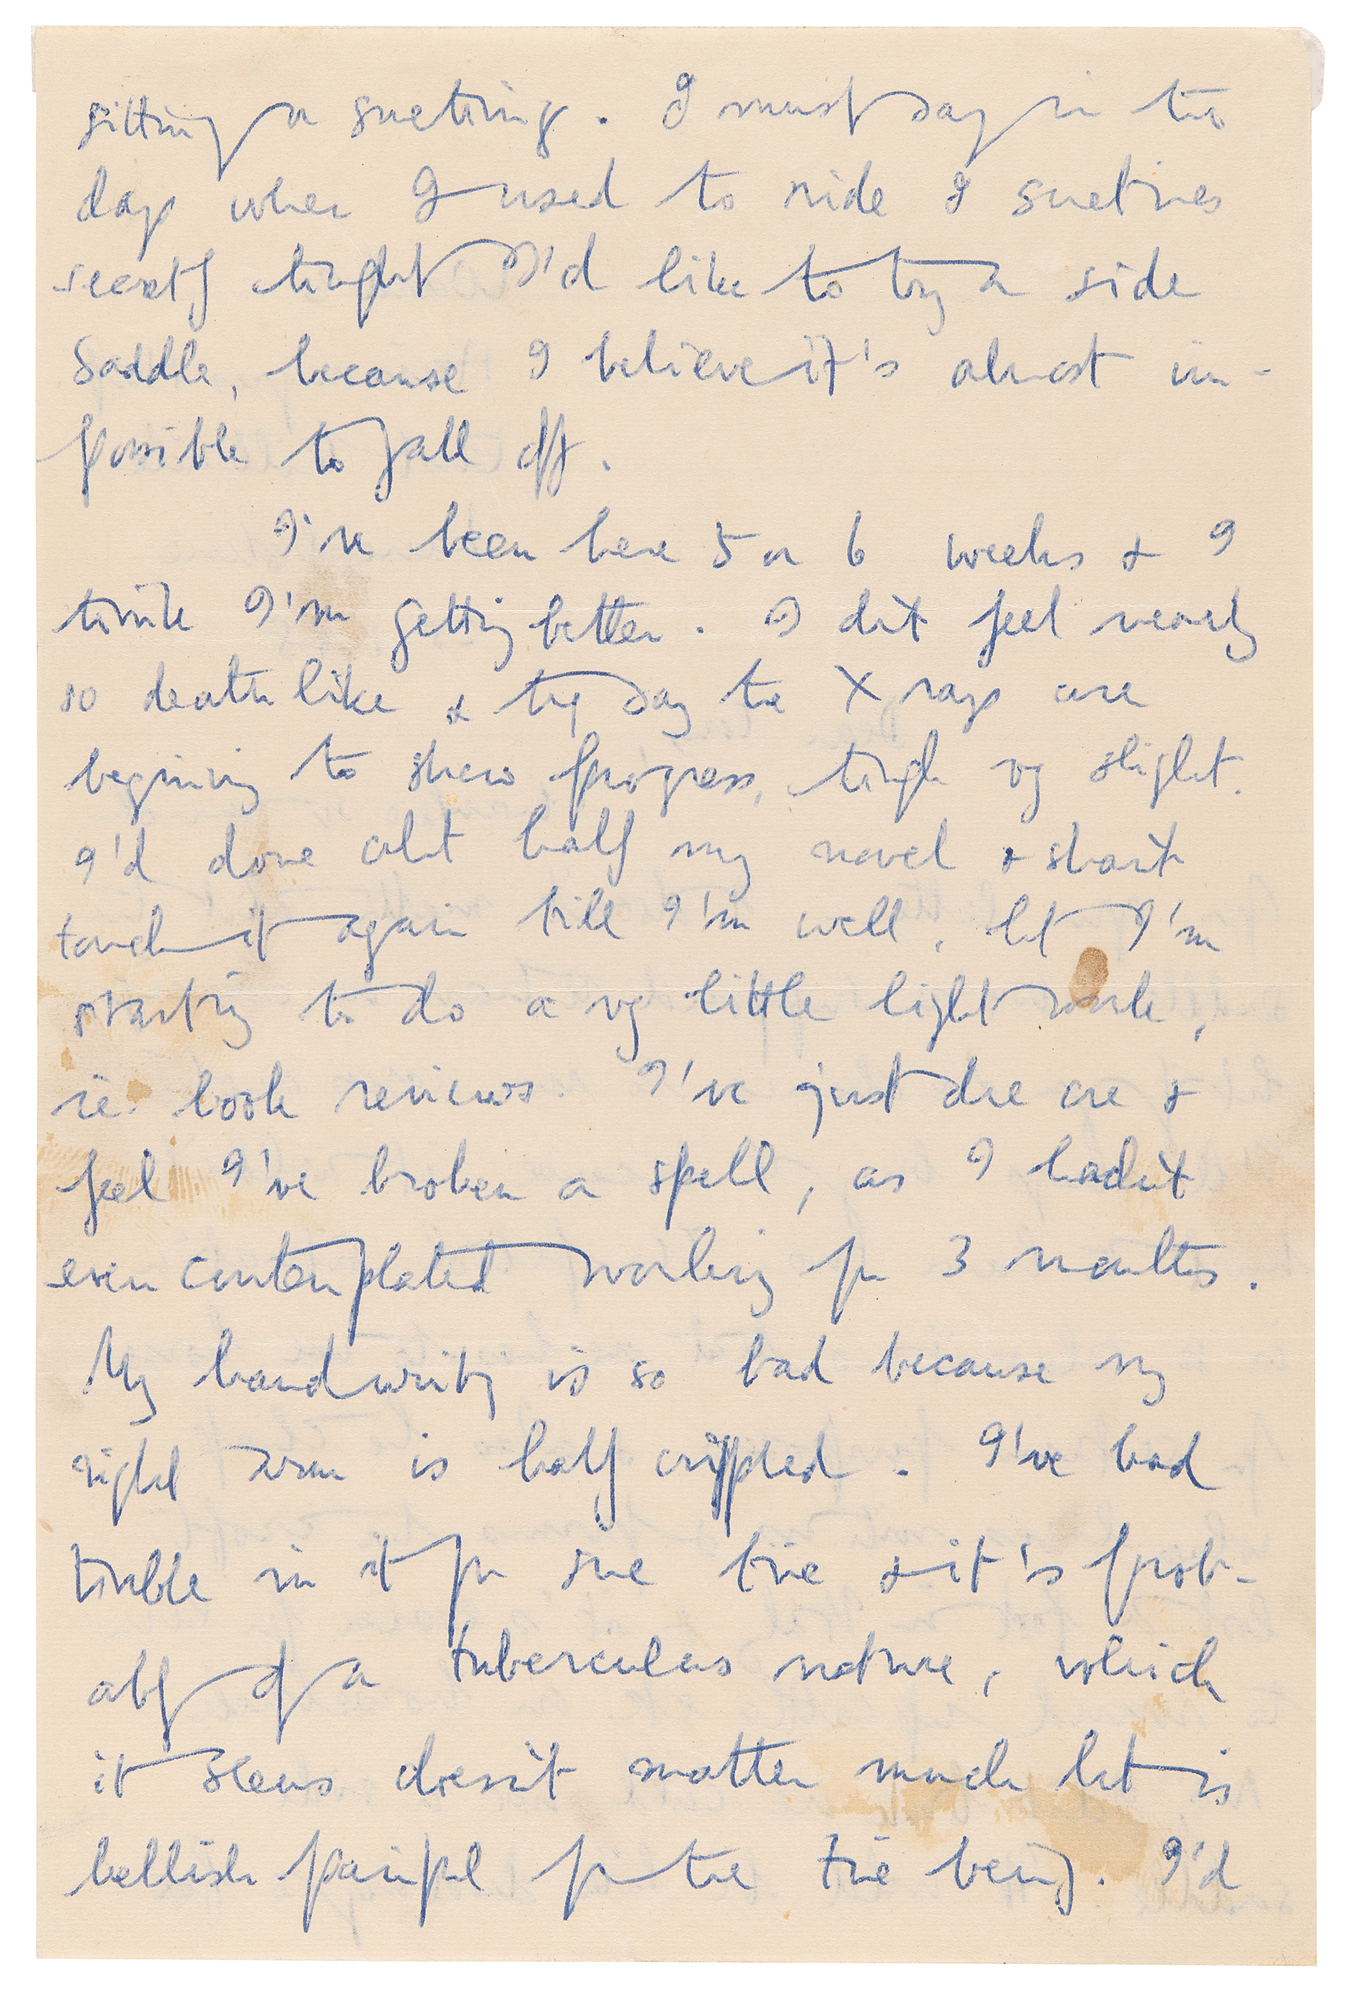 sitting or something. I must say in the
days when I used to ride I sometimes
secretly thought I'd like to try a side
saddle, because I believe it's almost im-
possible to fall off.
I've been here 5 or 6 weeks & I
think I'm getting better. I don't feel nearly
so deathlike & they say the X rays are
begining to show progress, though vy slight.
I'd done about half my novel & shan't
touch it again till I'm well, but I'm
starting to do a vy little light work,
ie. book reviews. I've just done one &
feel I've broken a spell, as I hadn't
even contemplated working for 3 months.
My handwriting is so bad because my
right arm is half crippled. I've had
trouble in it for some time & it's prob-
ably of a tuberculous nature, which
it seems doesn't matter much but is
hellish painful for the time being. I'd